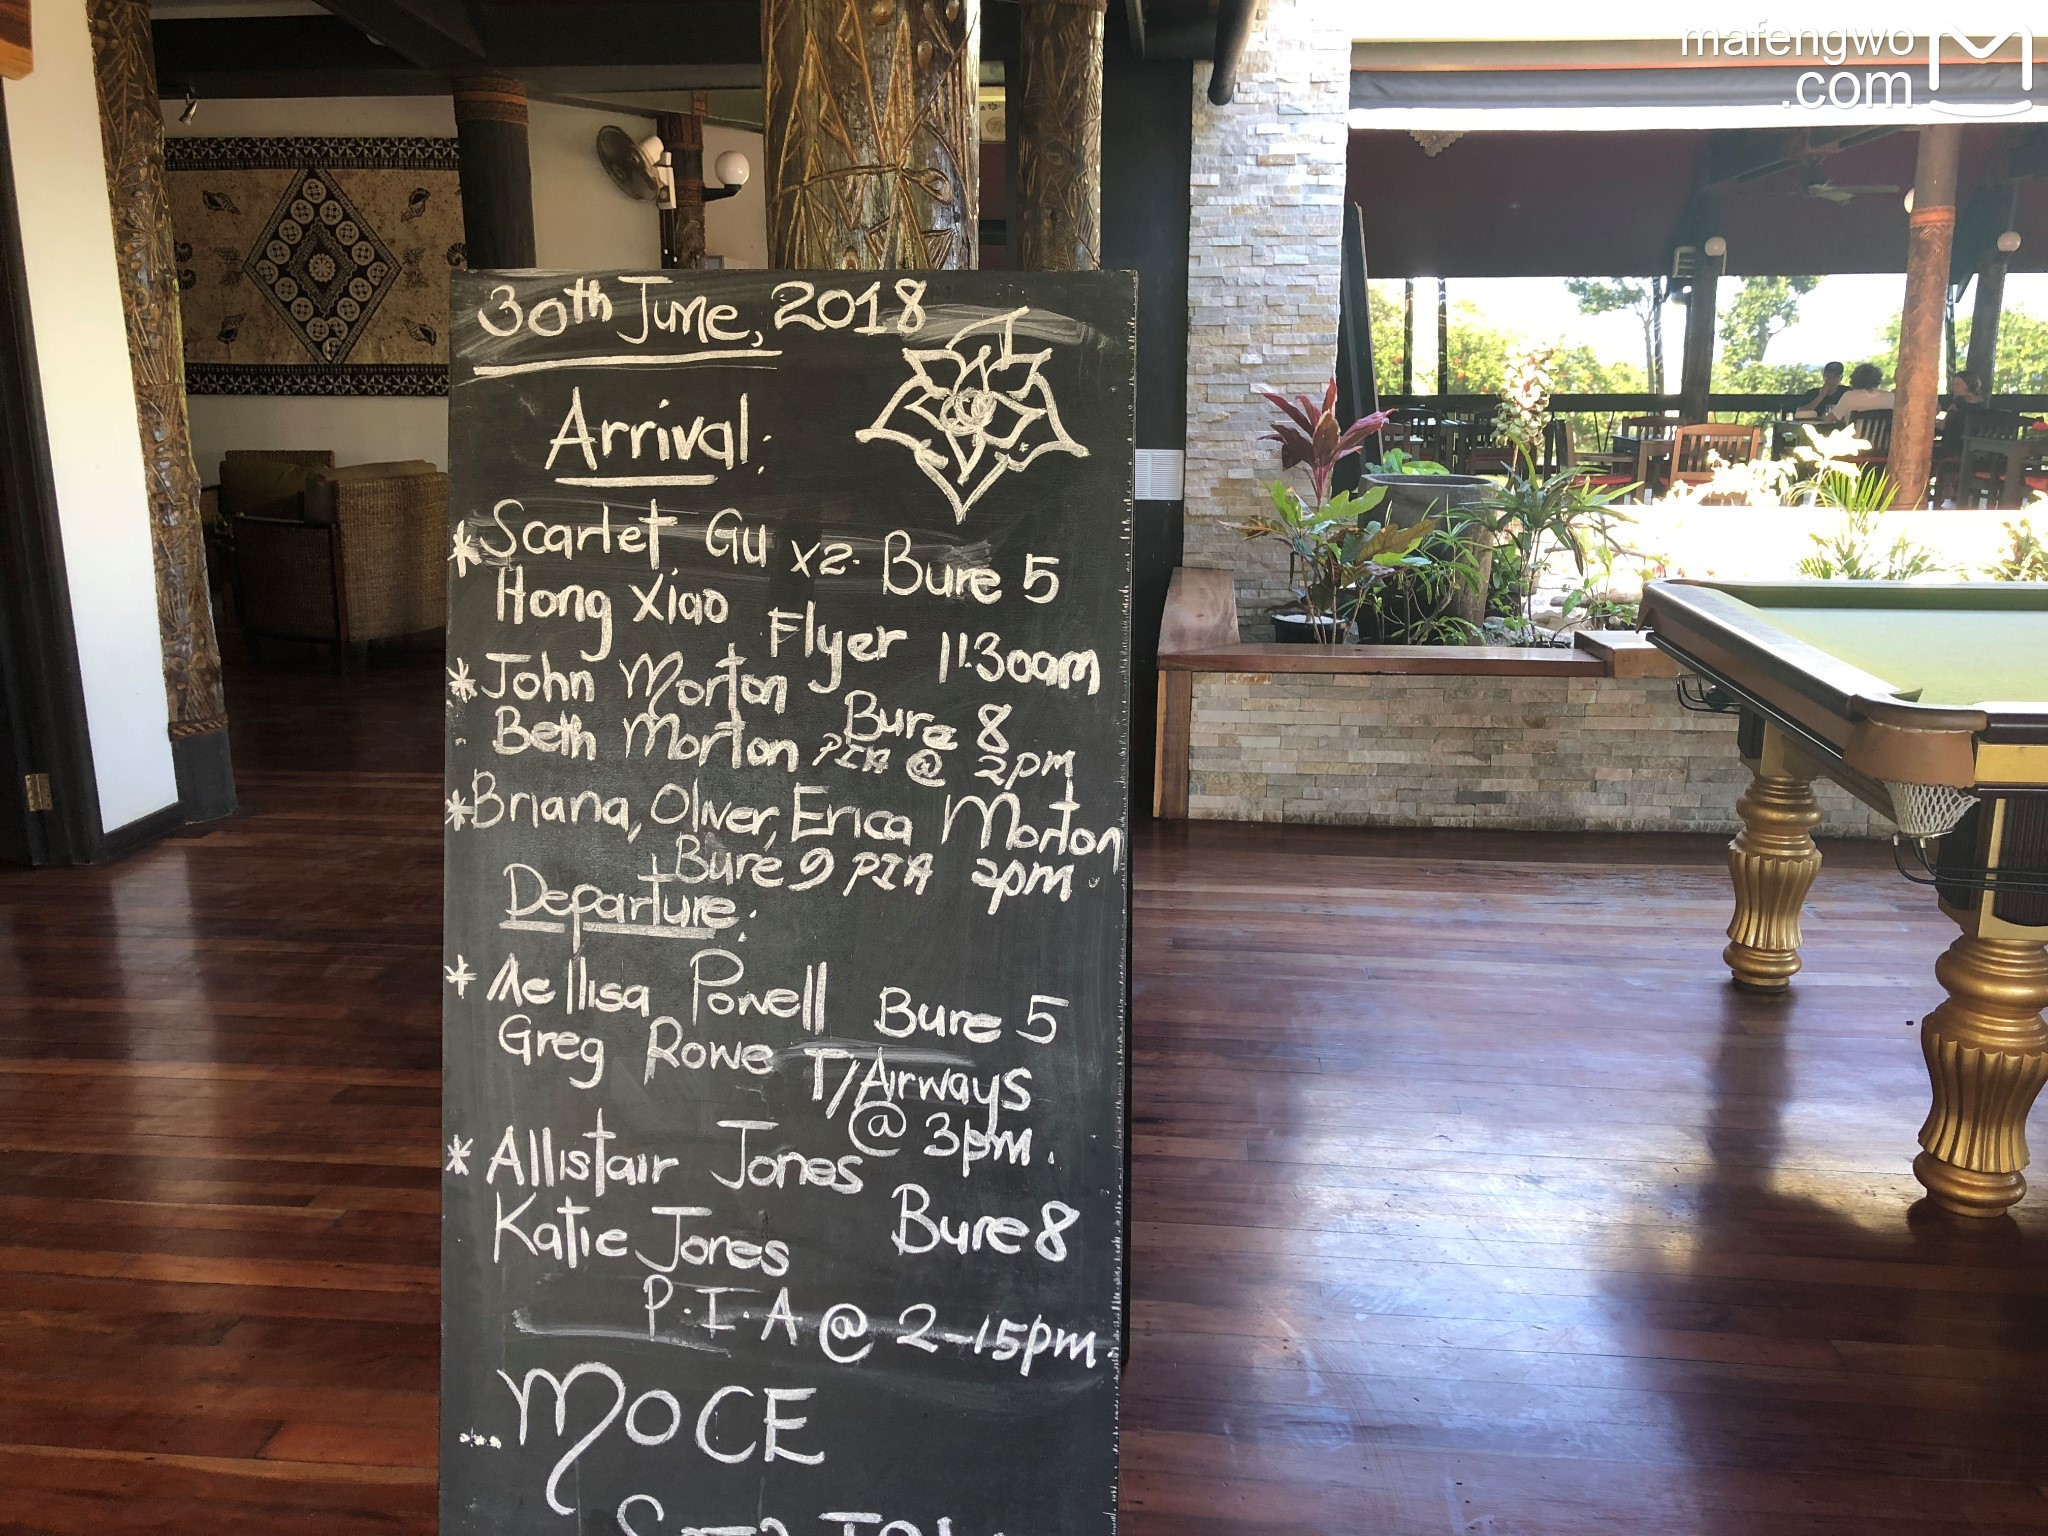 mafengwo
.com
30th June, 2018
Arrival:
* Scarlet Gu x2. Bure 5
Hong Xiao Flyer 11.30am
* John Morton Bure 8
Beth Morton PIA @ 2pm
* Briana, Oliver, Erica Morton
Bure 9 PIA 2pm.
Departure:
* Mellisa Powell Bure 5
Greg Rowe T/Airways
@ 3pm.
* Allistair Jones
Katie Jones Bure 8
P.I.A @ 2-15pm.
... MOCE